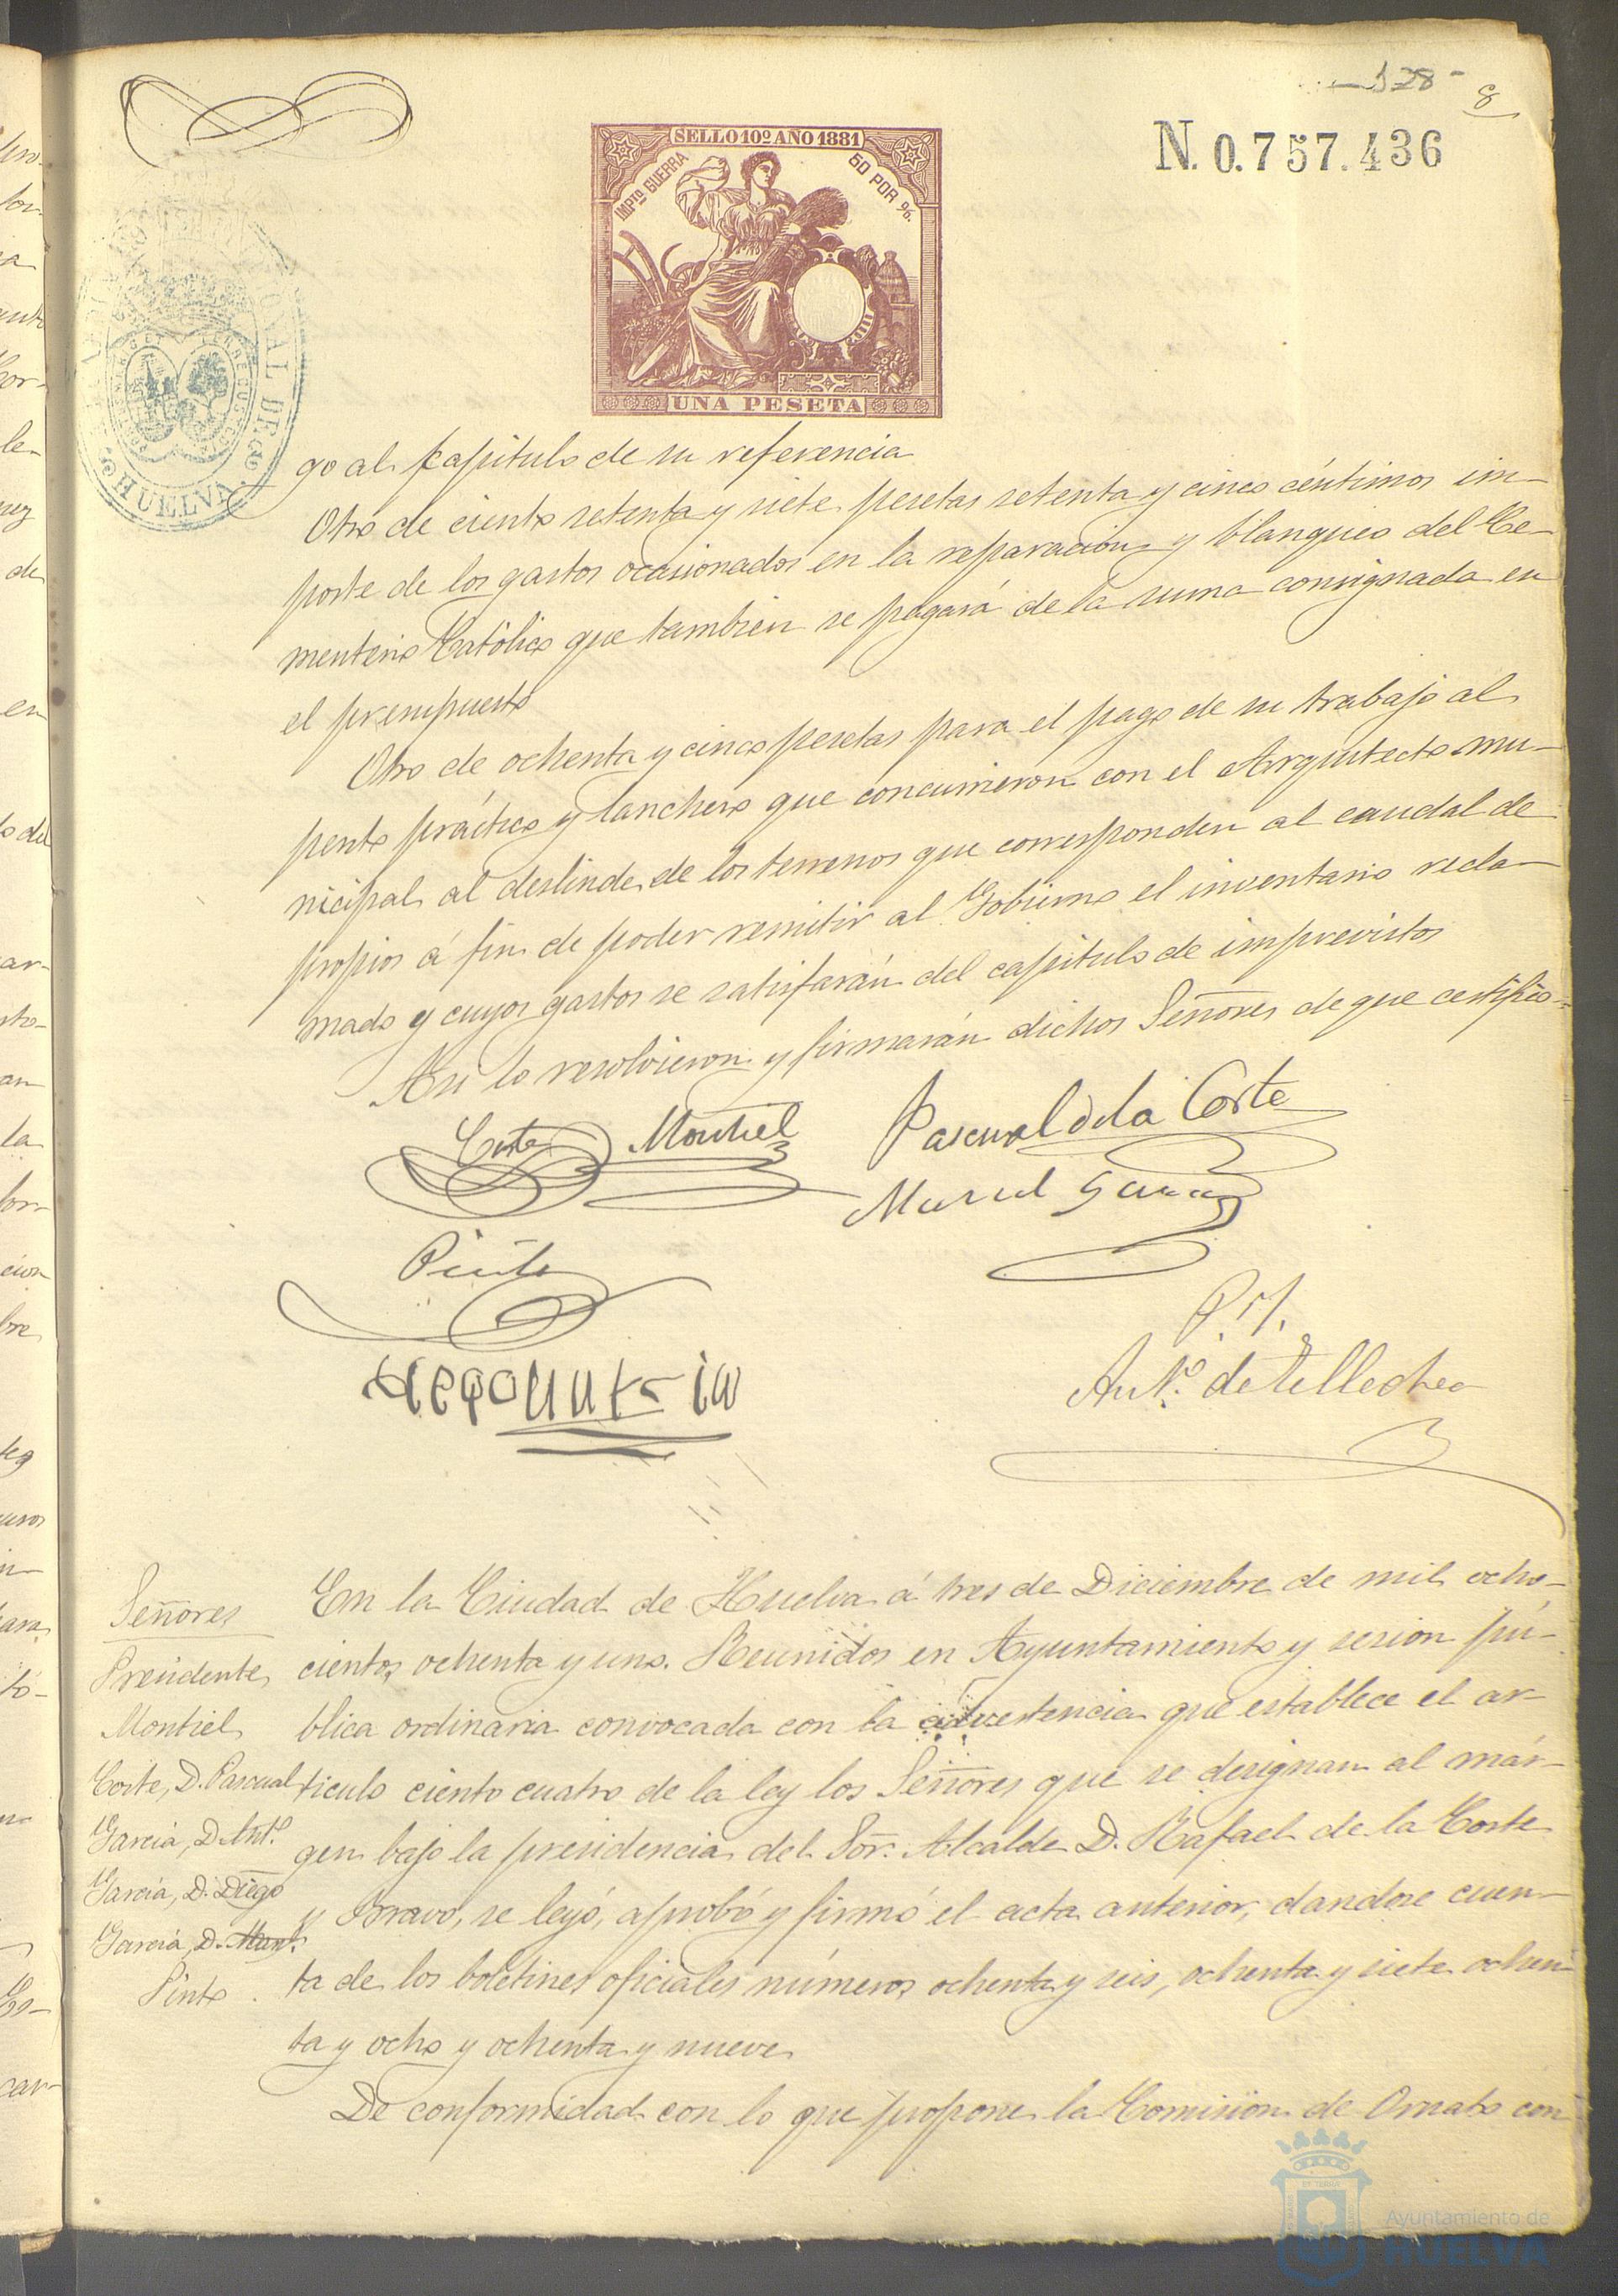 128
8
N. 0.757.436
SELLO 10º AÑO 1881
IMPTO GUERRA
60 POR %.
UNA PESETA
HUELVA
go al Capitulo de su referencia
Otro de ciento setenta y siete pesetas setenta y cinco céntimos im-
porte de los gastos ocasionados en la reparacion y blanqueo del Ce-
menterio Católico que tambien se pagará de la suma consignada en
el presupuesto
Otro de ochenta y cinco pesetas para el pago de su trabajo al
perito práctico y lanchero que concurrieron con el Arquitecto mu-
nicipal al deslinde de los terrenos que corresponden al caudal de
propios á fin de poder remitir al Gobierno el inventario recla-
mado y cuyos gastos se satisfarán del capitulo de imprevistos
Asi lo resolvieron y firmarán dichos Señores de que certifico=
Corte Montiel Pascual de la Corte
Manuel Garcia
Pinto
P. I.
Antº. de Tellechea
Señores
Presidente
Montiel
Corte, D. Pascual
Garcia, D. Antº
Garcia, D. Diego
Garcia, D. Manl.
Pinto
En la Ciudad de Huelva á tres de Diciembre de mil ocho-
cientos ochenta y uno. Reunidos en Ayuntamiento y sesion pú-
blica ordinaria convocada con la advertencia que establece el ar-
ticulo ciento cuatro de la ley los Señores que se designan al már-
gen bajo la presidencia del Sor. Alcalde D. Rafael de la Corte
y Bravo, se leyó, aprobó y firmó el acta anterior, dandose cuen-
ta de los boletines oficiales números ochenta y seis, ochenta y siete ochen-
ta y ocho y ochenta y nueve
De conformidad con lo que propone la Comision de Ornato con
Ayuntamiento de
HUELVA